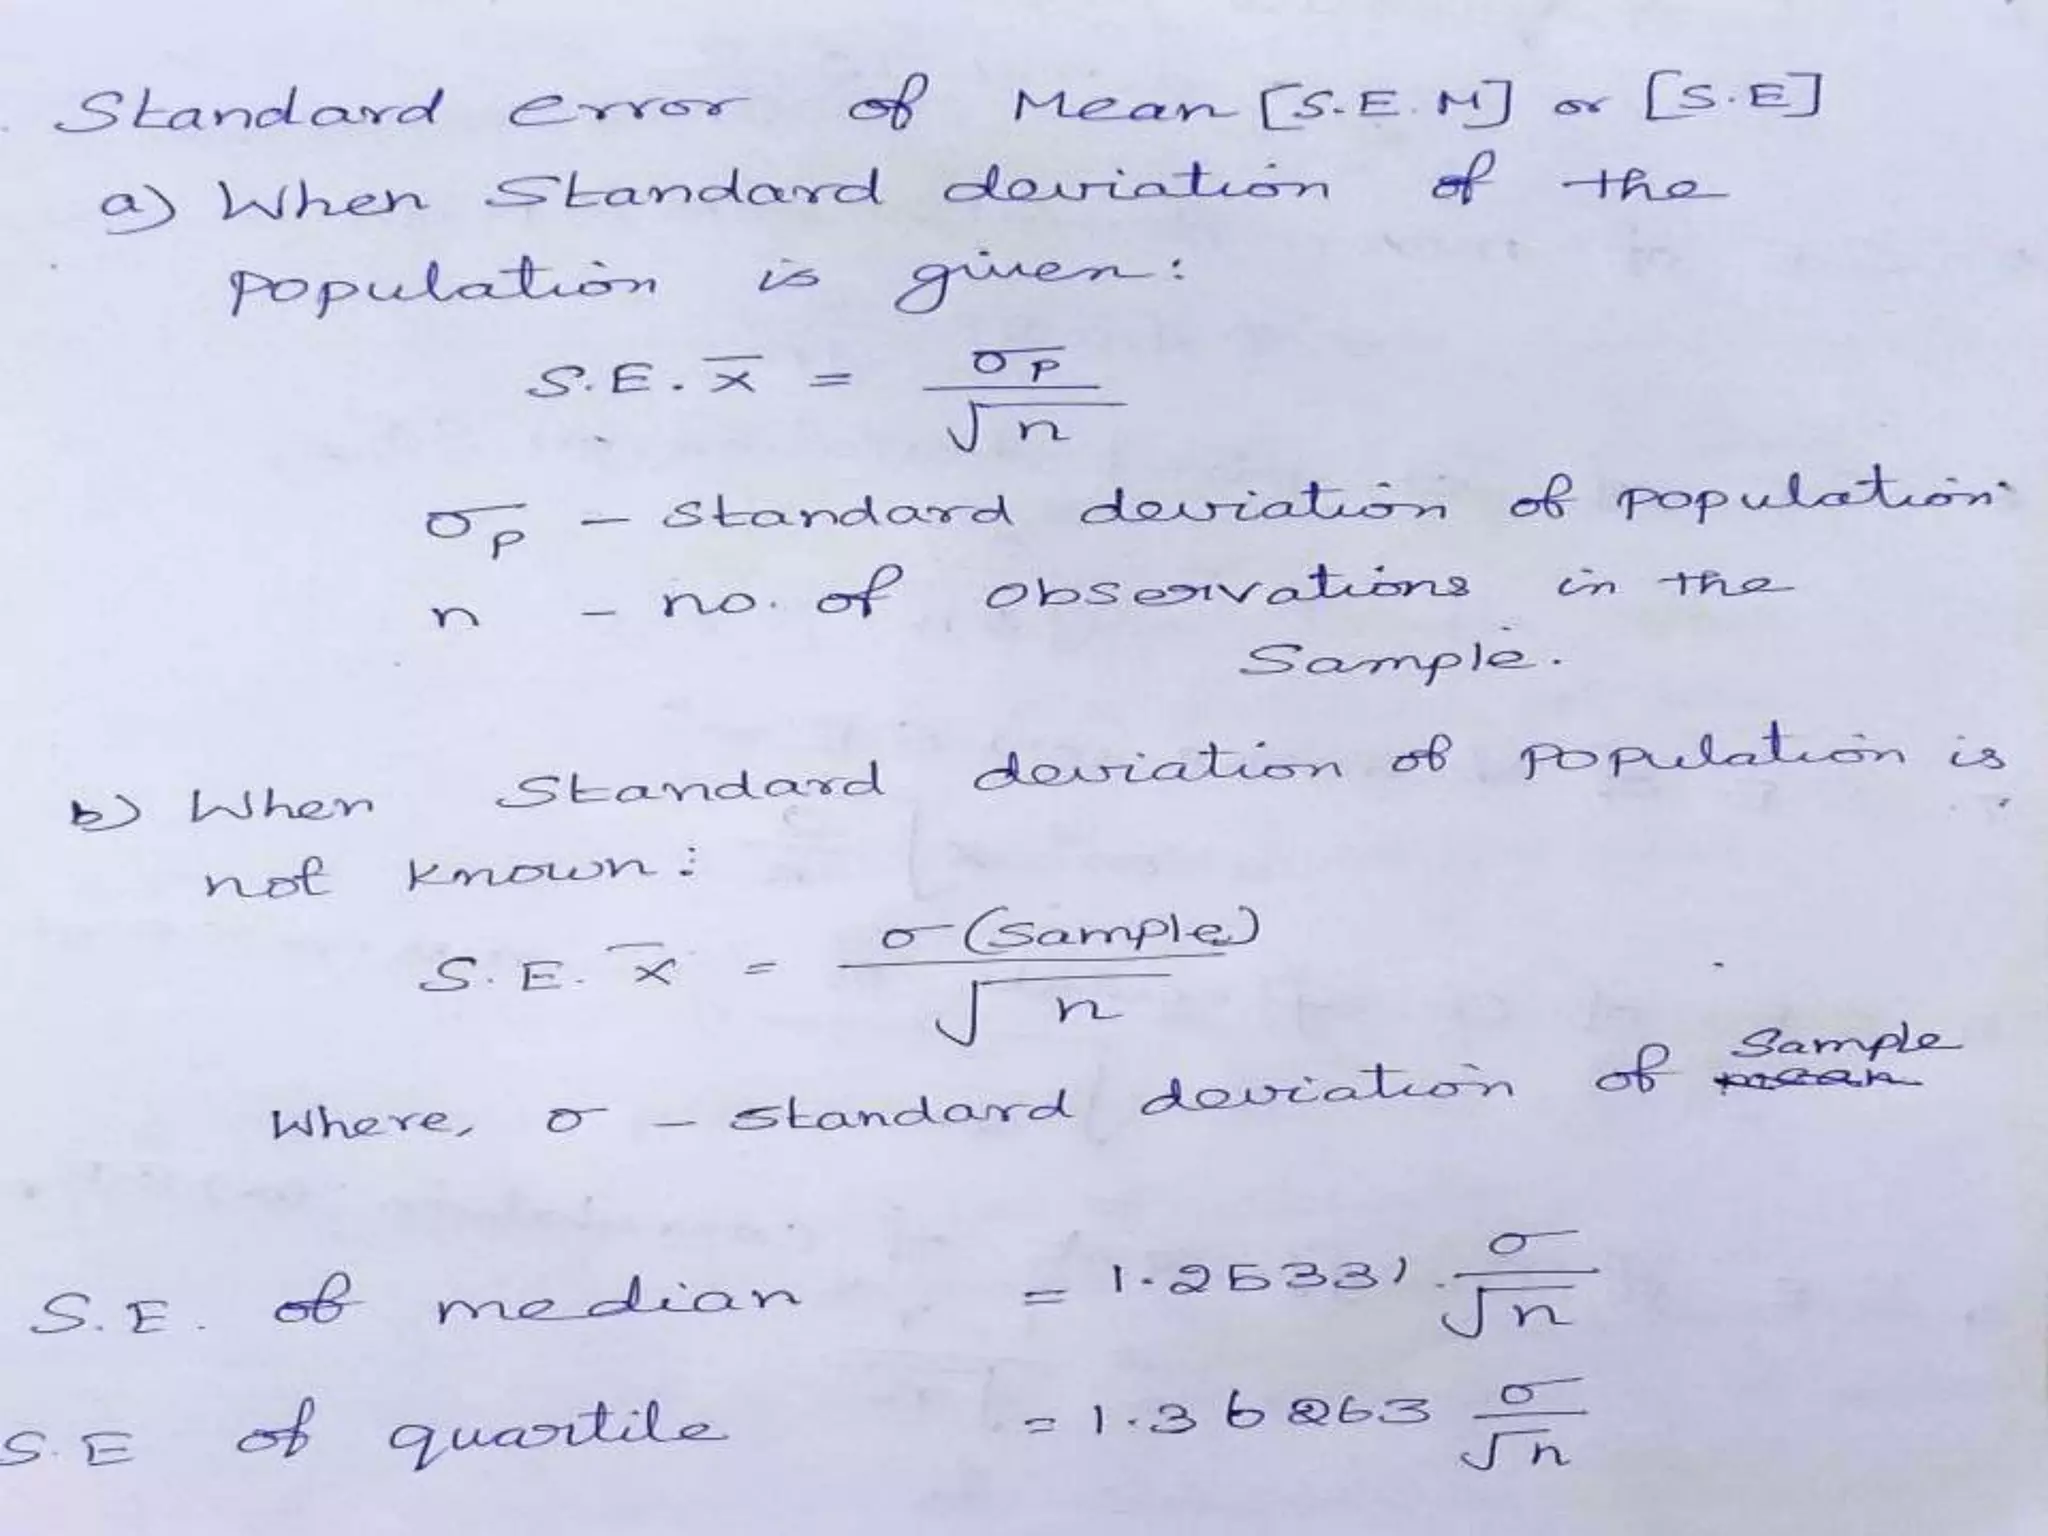 Standard error of Mean [S.E.M] or [S.E]
a) When Standard deviation of the
population is given:
S.E. x̅ = σp / √n
σp - standard deviation of population
n - no. of observations in the
Sample.
b) When Standard deviation of population is
not known:
S.E. x̅ = σ (sample) / √n
Where, σ - standard deviation of mean Sample
S.E. of median = 1.25331 . σ / √n
S.E of quartile = 1.36263 σ / √n